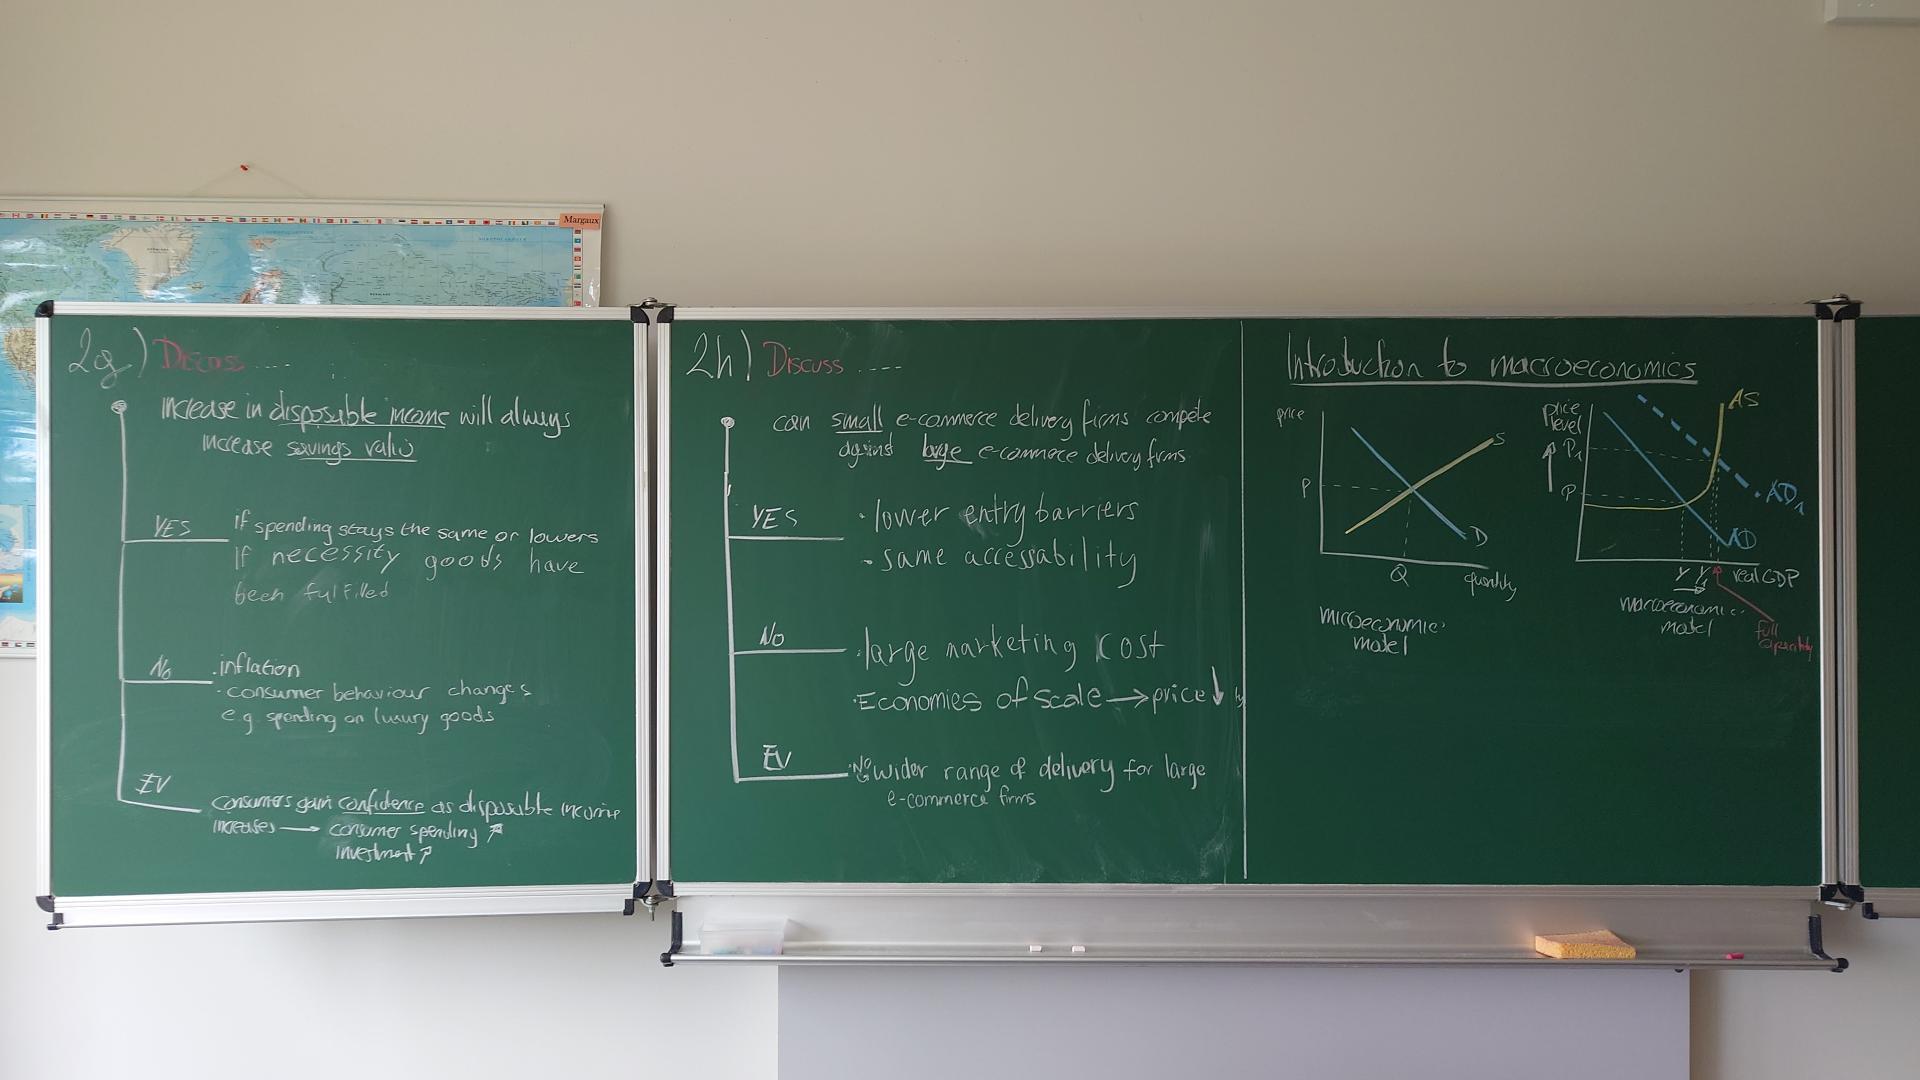 Margaux
2g) Discuss ....
increase in disposable income will always
increase savings ratio
YES
if spending stays the same or lowers
If necessity goods have
been fulfilled
No
· inflation
· consumer behaviour changes
e.g. spending on luxury goods
EV
consumers gain confidence as disposable income
increases → consumer spending ↗
investment ↗
2h) Discuss ....
can small e-commerce delivery firms compete
against large e-commerce delivery firms
YES
· lower entry barriers
· same accessability
No
· large marketing cost
· Economies of scale → price ↓
EV
· No wider range of delivery for large
e-commerce firms
Introduction to macroeconomics
price
S
P
D
Q
quantity
microeconomic
model
price
level
AS
P1
P
AD1
AD
Y Y1
real GDP
macroeconomic
model
full